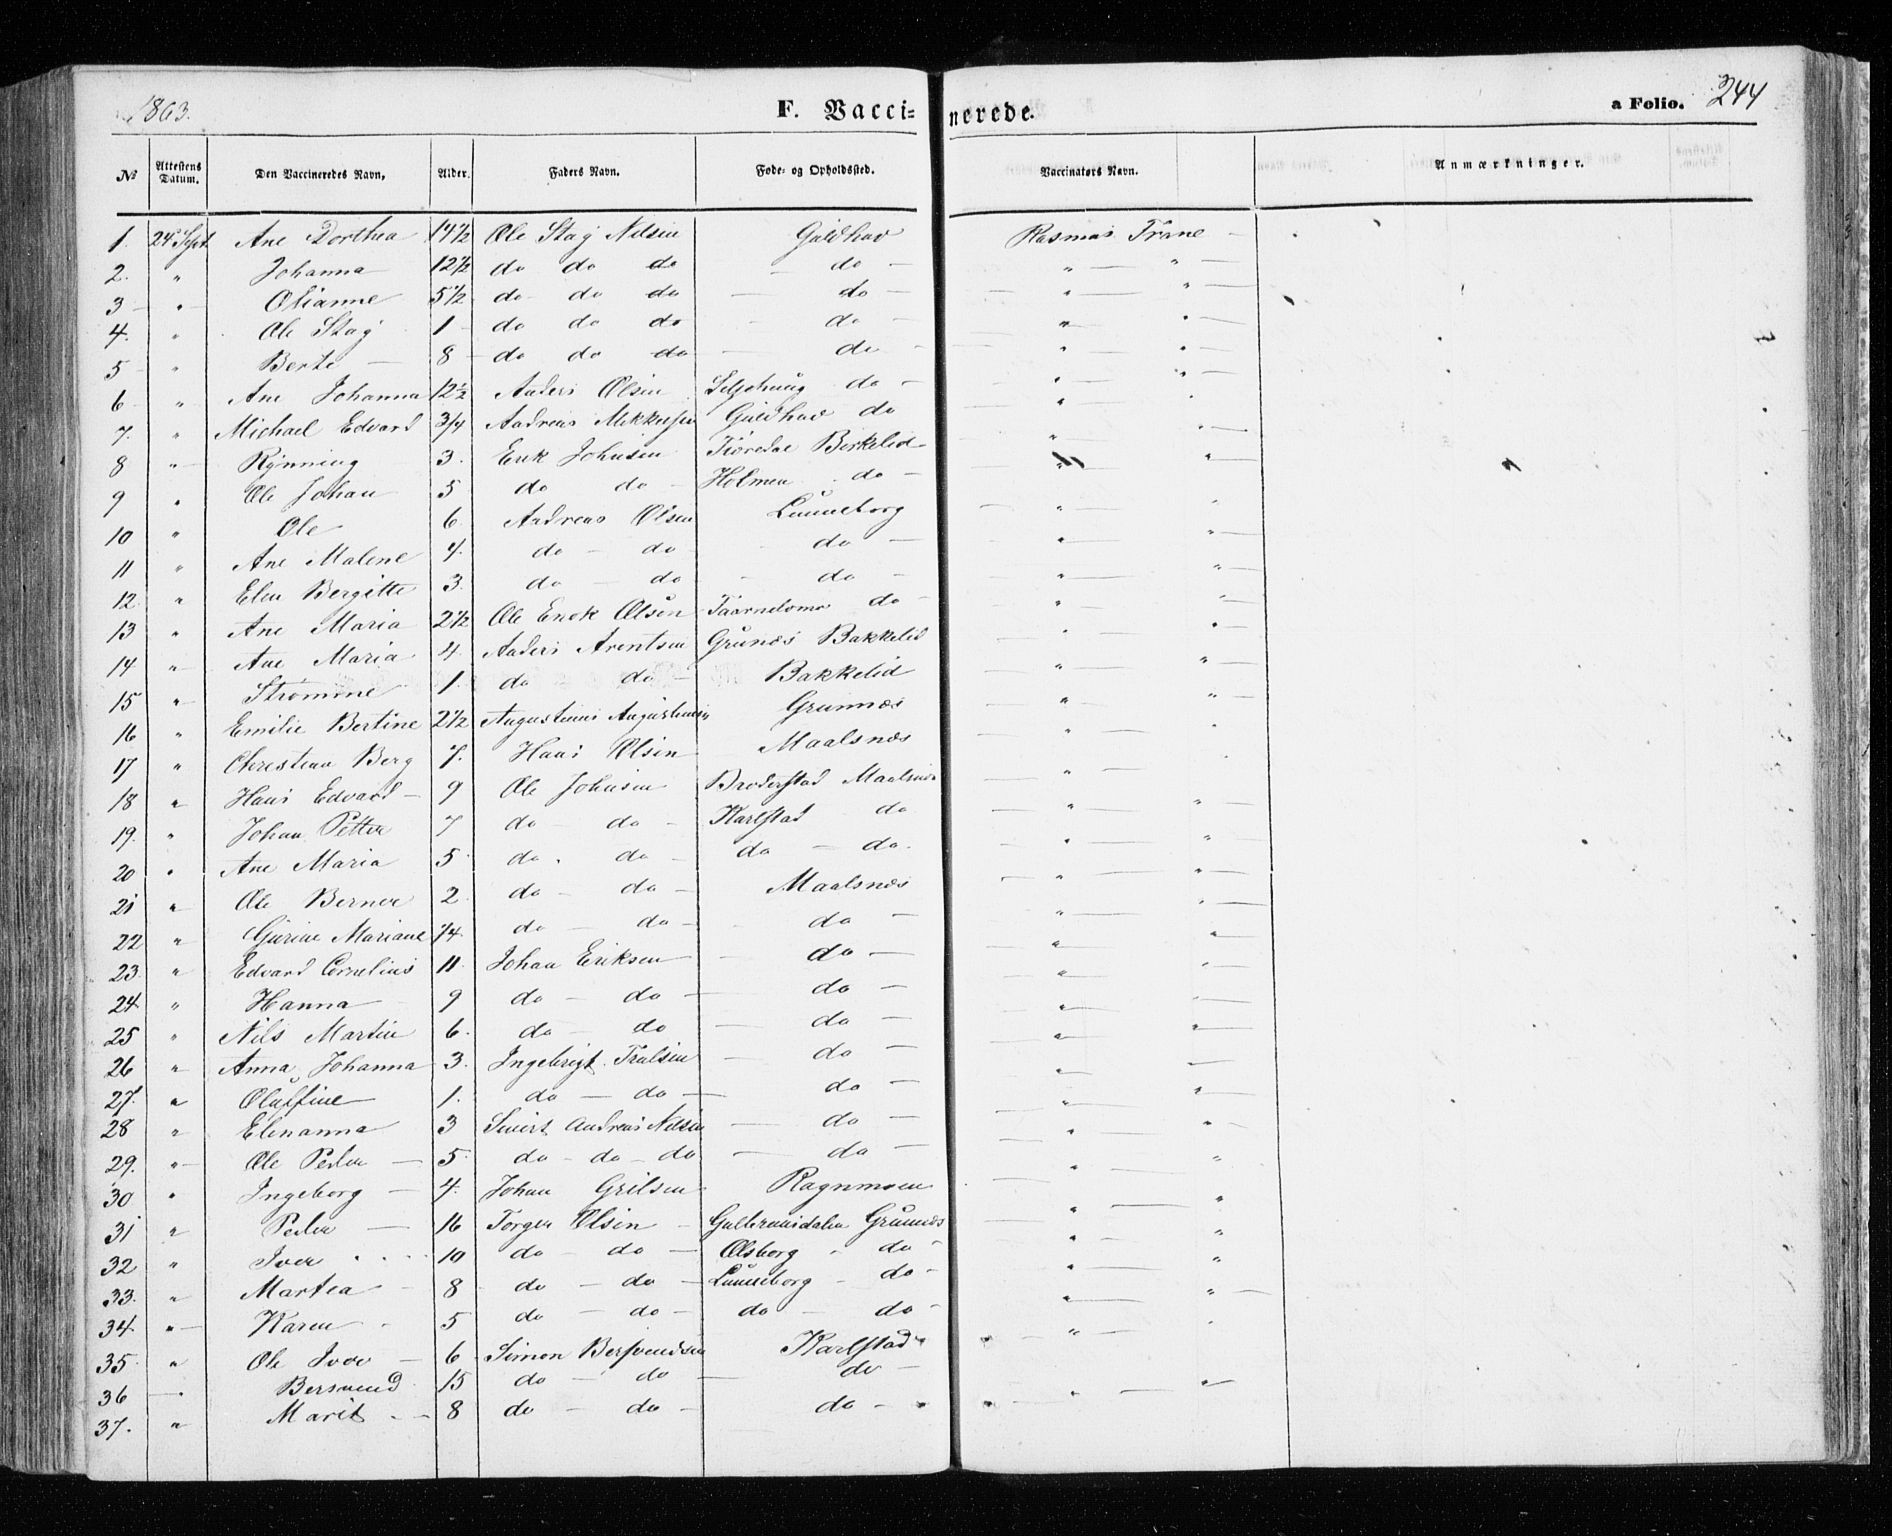 1863.
F. Vaccinerede.
a Folio. 244
No Attestens Datum. Den Vaccineredes Navn, Alder. Faders Navn. Føde- og Opholdssted. Vaccinatørs Navn. Anmærkninger.
1. 24 Sept Ane Dorthea 14 1/2 Ole Stag Nilsen Guldhav Rasmus Trane
2. " Johanna 12 1/2 do do do do " "
3 " Olianne 5 1/2 do do do do " "
4. " Ole Stag 1 do do do do " "
5 " Berte 8 do do do do " "
6 " Ane Johanna 12 1/2 Anders Olsen do " "
7. " Michael Edvard 3/4 Andreas Mikkelsen Guldhav do " "
8 " Rynning 3. Erik Johnsen Birkelid " "
9 " Ole Johan 5 do do Holmen do " "
10 " Ole 6 Andreas Olsen Lunneborg " "
11 " Ane Malene 4. do do do " "
12. " Elen Bergitte 3. do do do " "
13 " Ane Maria 2 1/2 Ole Enok Olsen do " "
14 " Ane Maria 4. Anders Arentsen Grunæs Bakkelid " "
15 " Strømine 1. do do Bakkelid " "
16 " Emilie Bertine 2 1/2 Augustinus Augustinusen Grunnæs " "
17 " Christian Berg 7. Hans Olsen Maalsnæs " "
18 " Hans Edvard 9 Ole Johnsen Broderstad Maalsnæs " "
19. " Johan Petter 7 do do Karlstad do " "
20 " Ane Maria 5 do do do do. " "
21 " Ole Berner 2 do do Maalsnæs " "
22 " Gurine Mariane 1/4 do do do " "
23. " Edvard Cornelius 11 Johan Eriksen do " "
24 " Hanna 9 do do do " "
25 " Nils Martin 6. do do do " "
26 " Anna Johanna 3. Ingebrigt Trulsen do " "
27. " Oluffine 1. do do do " "
28 " Elenanna 3 Sivert Andreas Nilsen do " "
29. " Ole Peder 5 do do do do " "
30 " Ingeborg 4. Johan Grilsen Ragnmoen " "
31 " Peder 16 Torger Olsen Gulbransdalen Grunnæs " "
32 " Iver 10 do do Olsborg do " "
33. " Martea 8 do do Lunneborg do " "
34 " Karen 5 do do do do " "
35 " Ole Iver 6 Simon Bersvendsen Karlstad " "
36 " Bersvend 15 do do do " "
37. " Marit 8 do do do